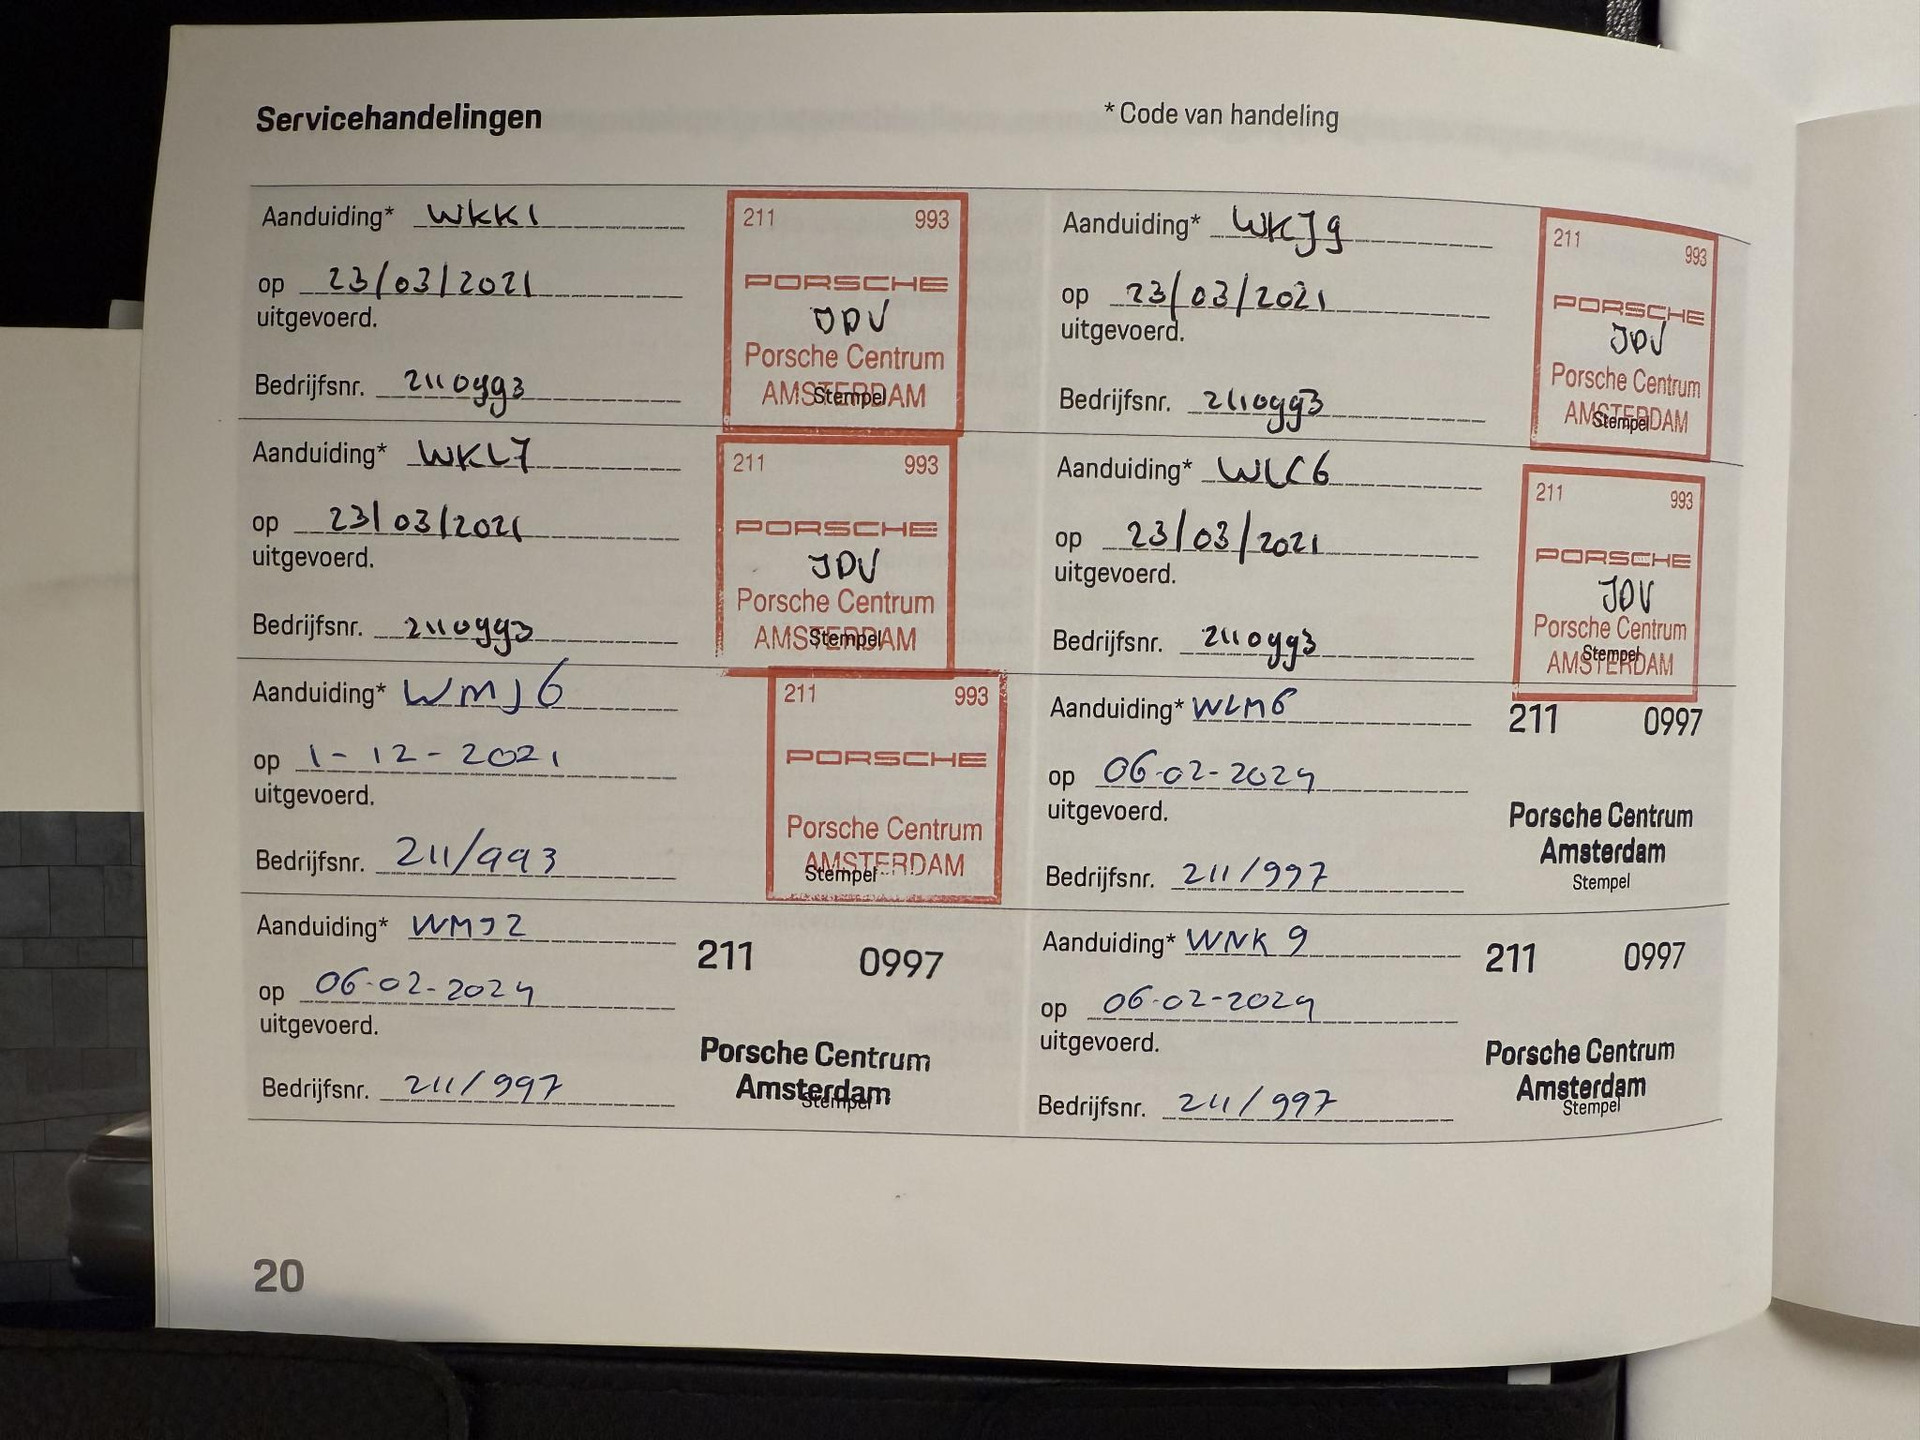 Servicehandelingen
* Code van handeling
Aanduiding* WKK1
op 23/03/2021
uitgevoerd.
Bedrijfsnr. 2110993
211 993
PORSCHE
JDV
Porsche Centrum
AMSTERDAM
Stempel
Aanduiding* WKJ9
op 23/03/2021
uitgevoerd.
Bedrijfsnr. 2110993
211 993
PORSCHE
JDV
Porsche Centrum
AMSTERDAM
Stempel
Aanduiding* WKL7
op 23/03/2021
uitgevoerd.
Bedrijfsnr. 2110993
211 993
PORSCHE
JDV
Porsche Centrum
AMSTERDAM
Stempel
Aanduiding* WLC6
op 23/03/2021
uitgevoerd.
Bedrijfsnr. 2110993
211 993
PORSCHE
JDV
Porsche Centrum
AMSTERDAM
Stempel
Aanduiding* WMJ6
op 1-12-2021
uitgevoerd.
Bedrijfsnr. 211/993
211 993
PORSCHE
Porsche Centrum
AMSTERDAM
Stempel
Aanduiding* WLM6
op 06-02-2024
uitgevoerd.
Bedrijfsnr. 211/997
211 0997
Porsche Centrum
Amsterdam
Stempel
Aanduiding* WMJ2
op 06-02-2024
uitgevoerd.
Bedrijfsnr. 211/997
211 0997
Porsche Centrum
Amsterdam
Stempel
Aanduiding* WNK9
op 06-02-2024
uitgevoerd.
Bedrijfsnr. 211/997
211 0997
Porsche Centrum
Amsterdam
Stempel
20